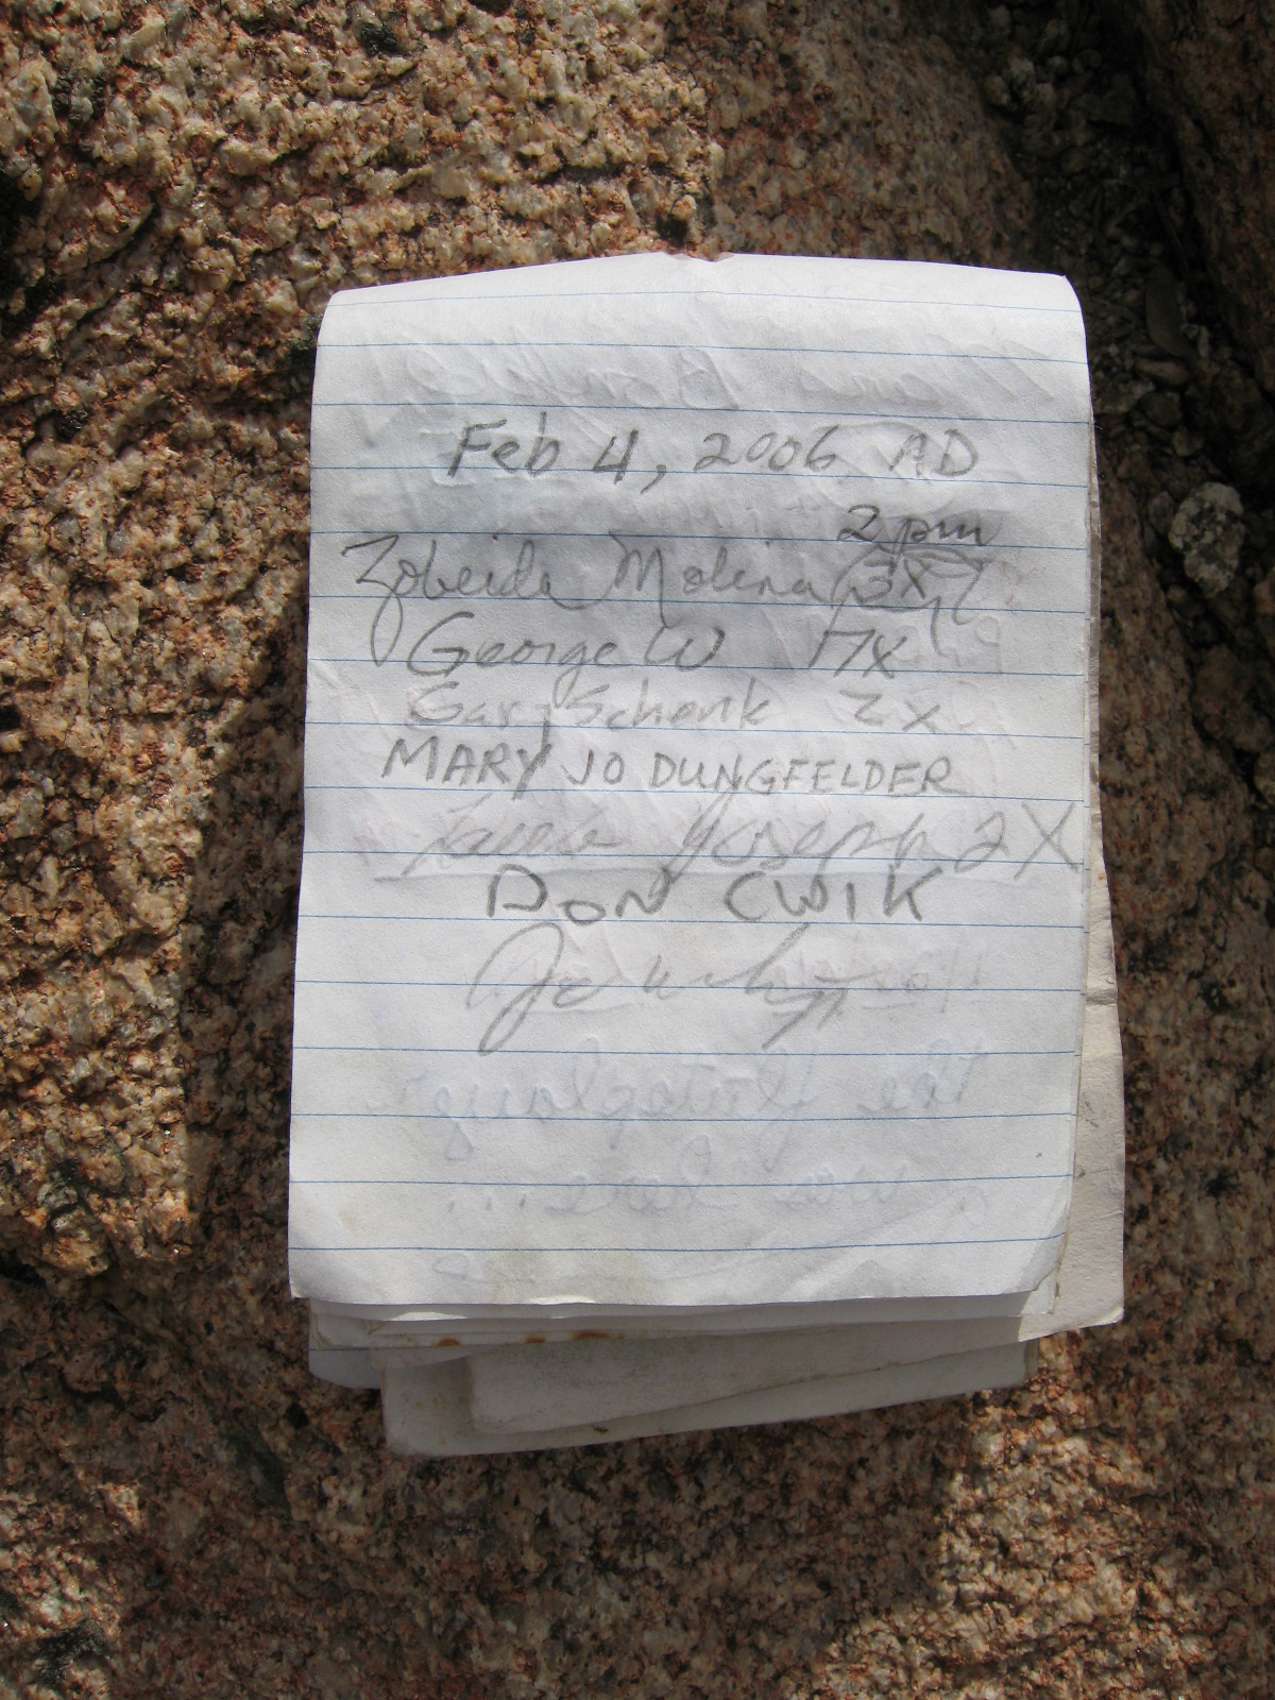 Feb 4, 2006 AD
2 pm
Zobeida Molina 3X
George W 17X
Gary Schenk 2X
MARY JO DUNGFELDER
Joseph 2X
DON CWIK
Joe